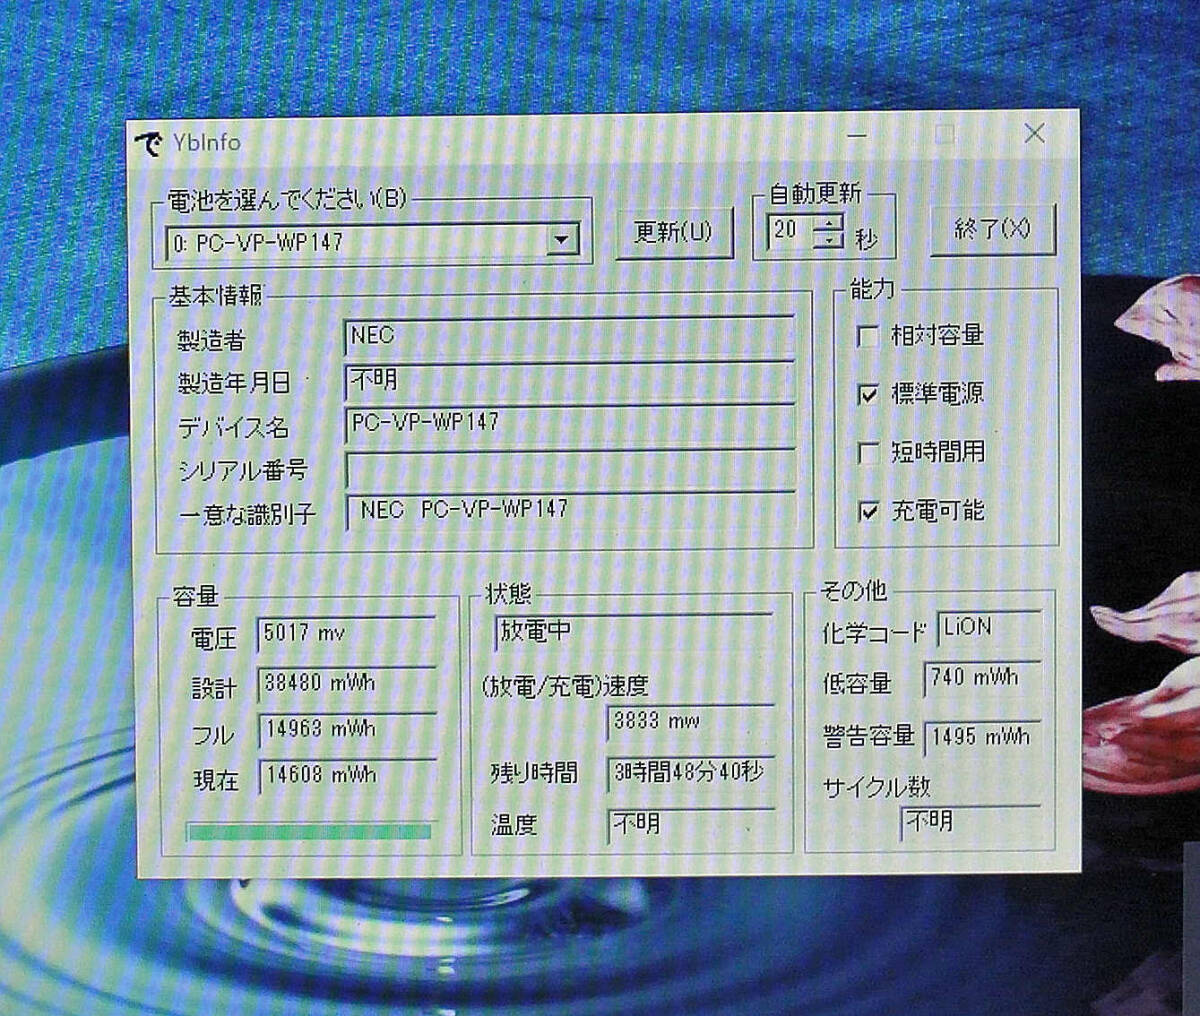 で YbInfo
電池を選んでください(B)
0: PC-VP-WP147
更新(U)
自動更新
20 秒
終了(X)
基本情報
製造者 NEC
製造年月日 不明
デバイス名 PC-VP-WP147
シリアル番号
一意な識別子 NEC PC-VP-WP147
能力
相対容量
標準電源
短時間用
充電可能
容量
電圧 5017 mv
設計 38480 mWh
フル 14963 mWh
現在 14608 mWh
状態
放電中
(放電/充電)速度
3833 mw
残り時間 3時間48分40秒
温度 不明
その他
化学コード LiON
低容量 740 mWh
警告容量 1495 mWh
サイクル数
不明